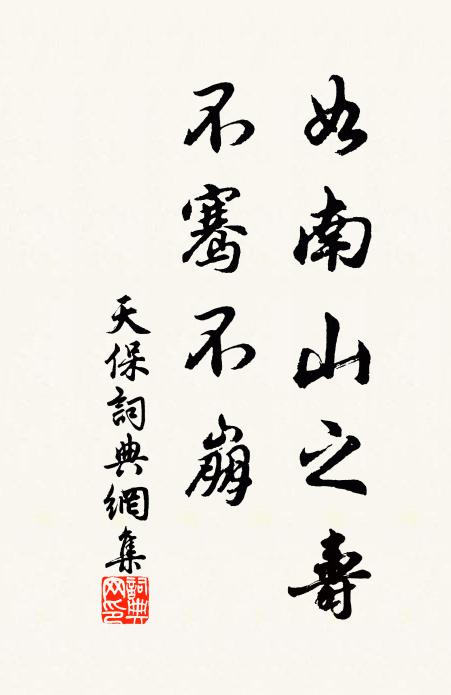 如南山之壽
不骞不崩
天保詞典網集
詞典网印